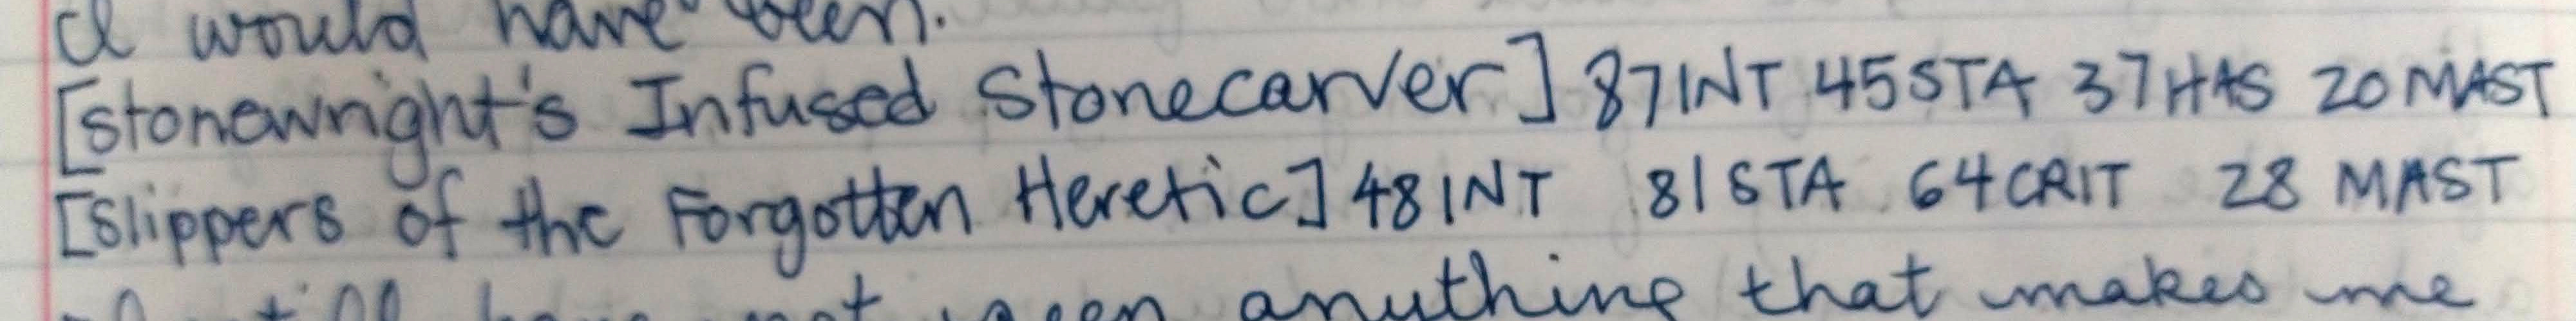 I would have been.
[Stonewright's Infused Stonecarver] 87INT 45STA 37HAS 20MAST
[Slippers of the Forgotten Heretic] 48INT 81STA 64CRIT 28 MAST
I still have not seen anything that makes me